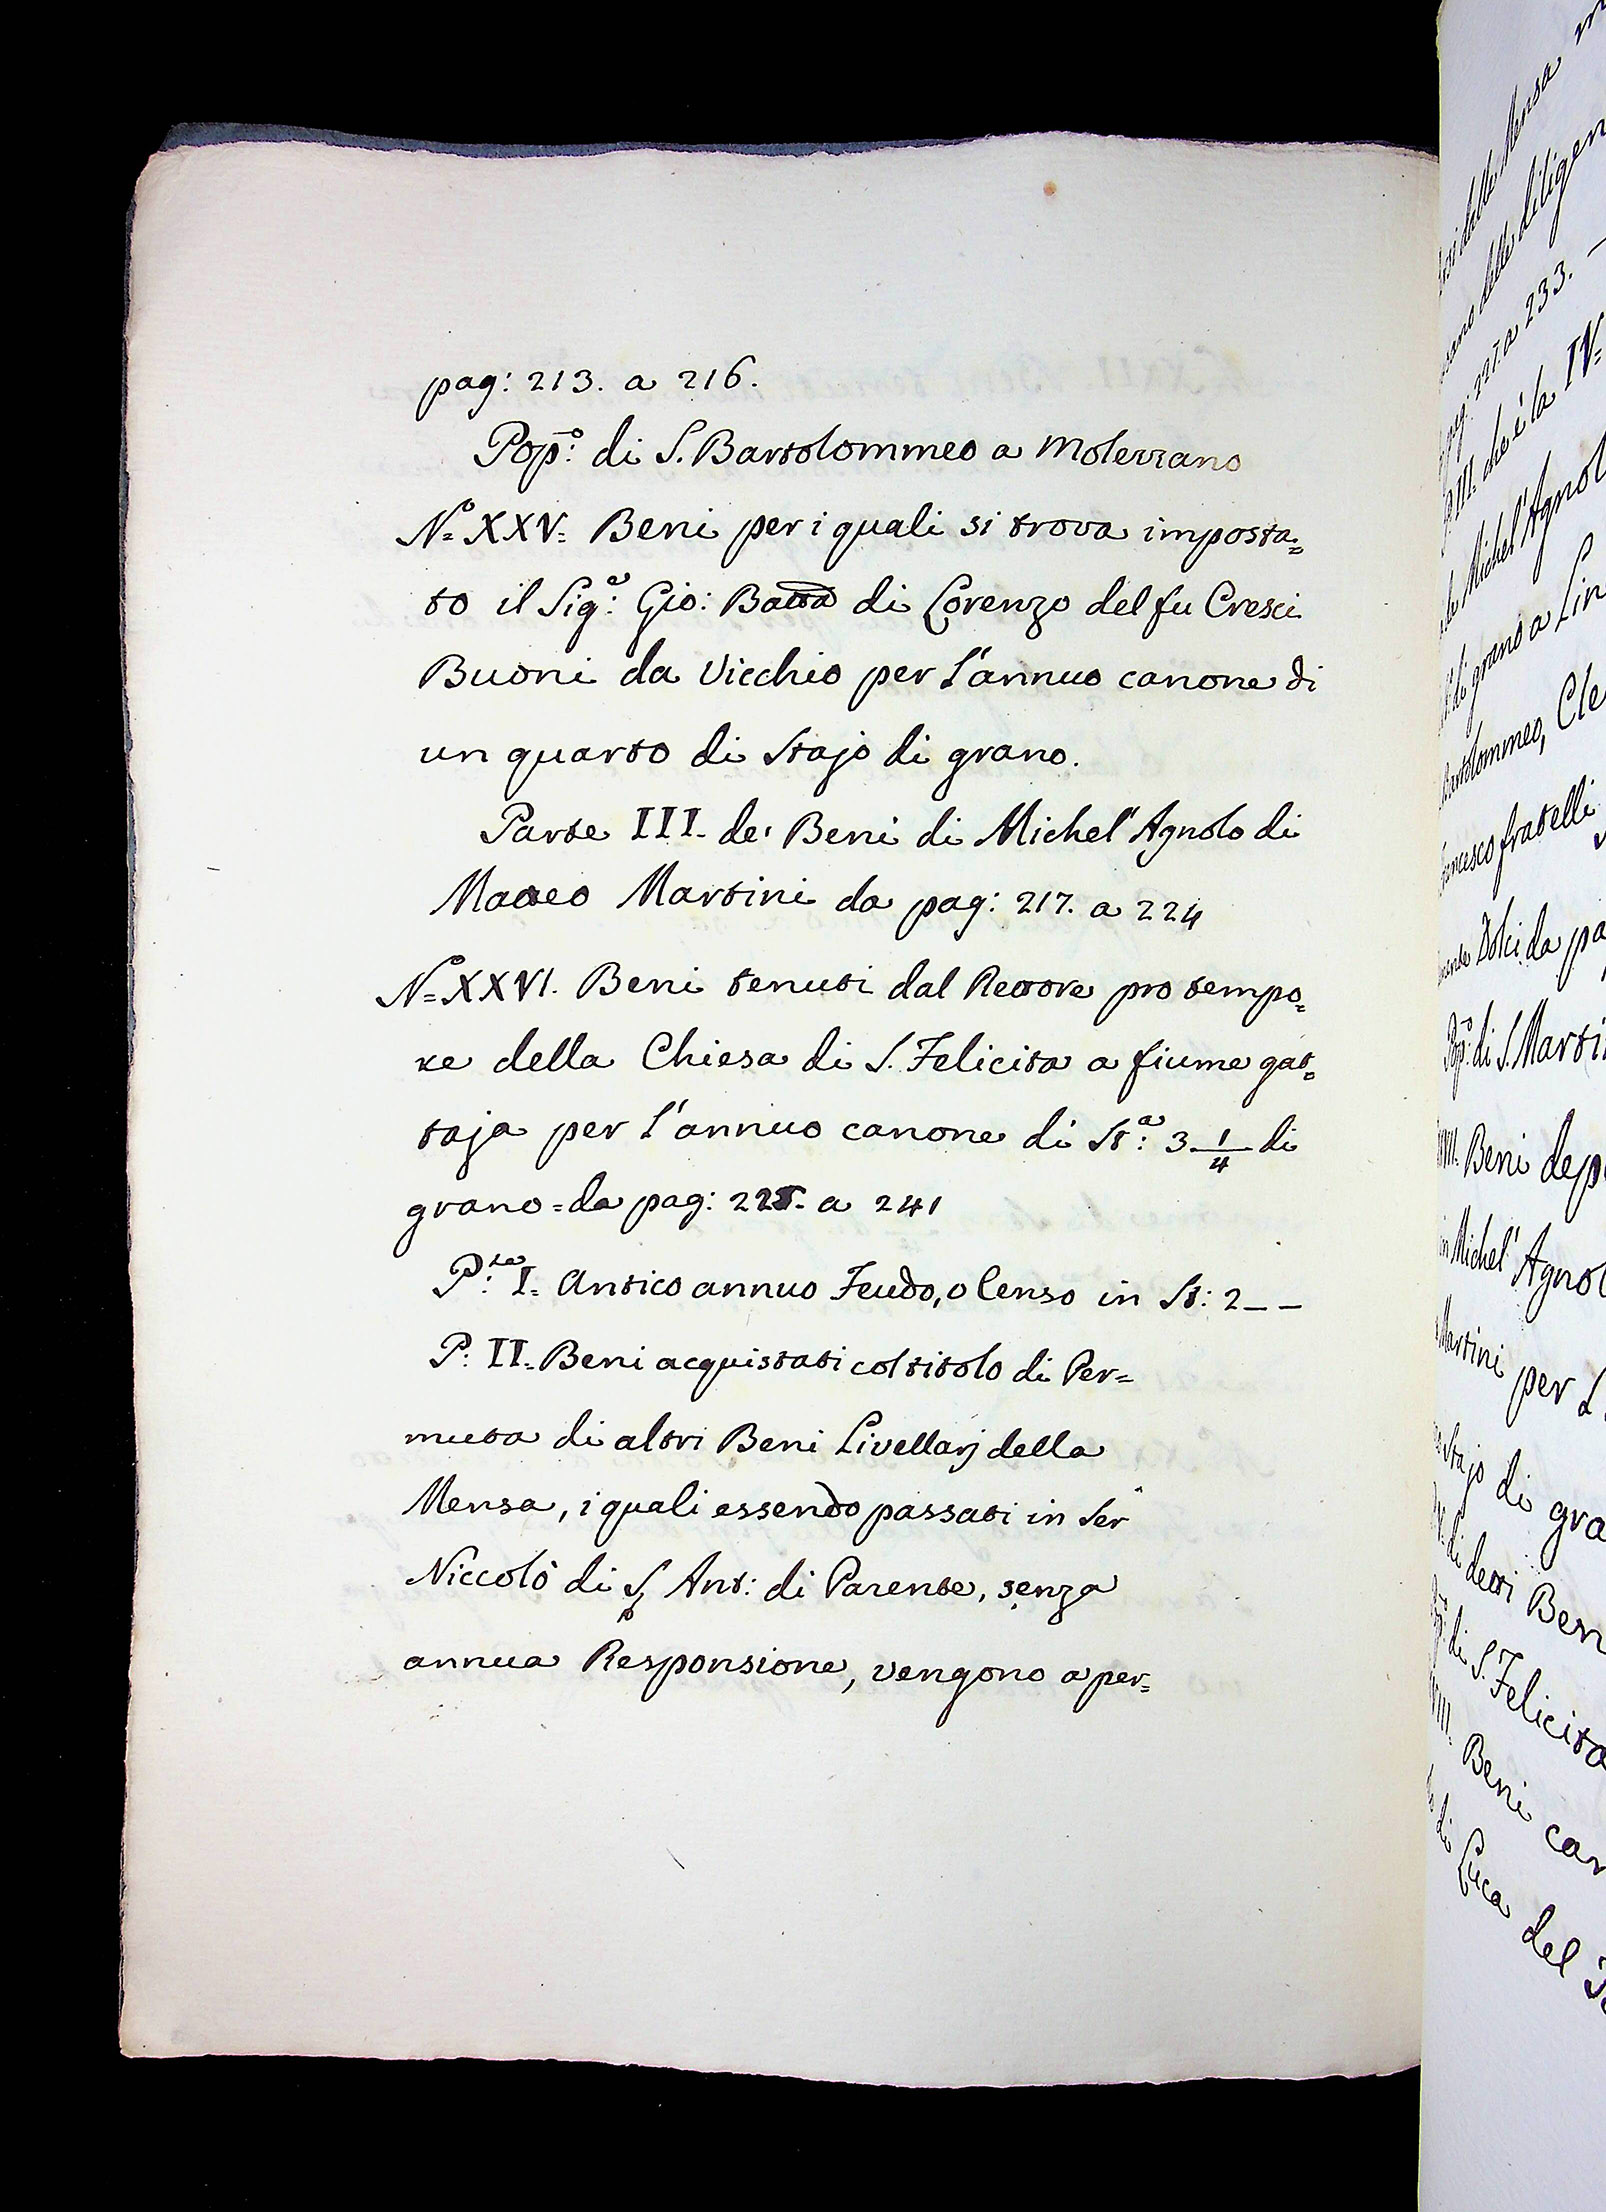 pag: 213. a 216.
Pop:º di S. Bartolommeo a Molezzano
Nº XXV= Beni per i quali si trova imposta=
to il Sig:e Gio: Batta di Lorenzo del fu Cresci
Buoni da Vicchio per l'annuo canone di
un quarto di Stajo di grano.
Parte III. de' Beni di Michel'Agnolo di
Matteo Martini da pag: 217. a 224
Nº XXVI. Beni tenuti dal Rettore pro tempo=
re della Chiesa di S. Felicita a fiume gat=
taja per l'annuo canone di St:a 3 1/4 di
grano = da pag: 225. a 241
P:te I= Antico annuo Feudo, o Censo in St: 2 – –
P: II= Beni acquistati col titolo di Per=
muta di altri Beni Livellarj della
Mensa, i quali essendo passati in Ser
Niccolò di S. Ant: di Parente, senza
annua Responsione, vengono a per=
dalla Mensa
delle diligen
pag: 227. a 233.
P. III. che è la IV=
Michel'Agnol
di grano a Lin
Bartolommeo, Cle
Francesco fratelli
Dolci da pa
Pop:º di S. Marti
Beni dep
in Michel'Agnol
Martini per l
Stajo di gra
di detti Ben
di S. Felicita
VIII. Beni con
di Luca del